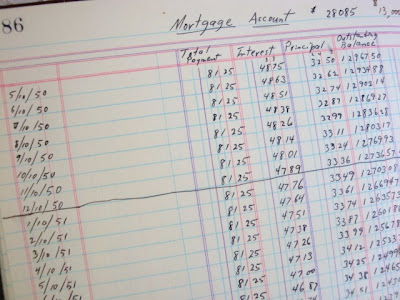 86 Mortgage Account # 28085 $ 13,000
Total Payment Interest Principal Outstanding Balance
5/10/50 81 25 48 75 32 50 12967 50
6/10/50 81 25 48 63 32 62 12934 88
7/10/50 81 25 48 51 32 74 12902 14
8/10/50 81 25 48 38 32 87 12869 27
9/10/50 81 25 48 26 32 99 12836 28
10/10/50 81 25 48 14 33 11 12803 17
11/10/50 81 25 48 01 33 24 12769 93
12/10/50 81 25 47 89 33 36 12736 57
1/10/51 81 25 47 76 33 49 12703 08
2/10/51 81 25 47 64 33 61 12669 47
3/10/51 81 25 47 51 33 74 12635 7
4/10/51 81 25 47 38 33 87 12601 8
5/10/51 81 25 47 26 33 99 12567 8
81 25 47 13 34 12 12533
81 25 47 00 34 25 12499
81 25 46 87 34 38 12465
34 51